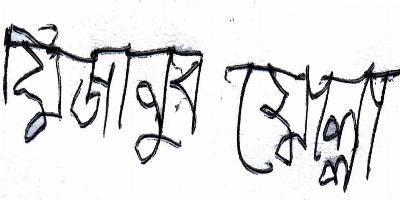 মিজানুর মোল্লা